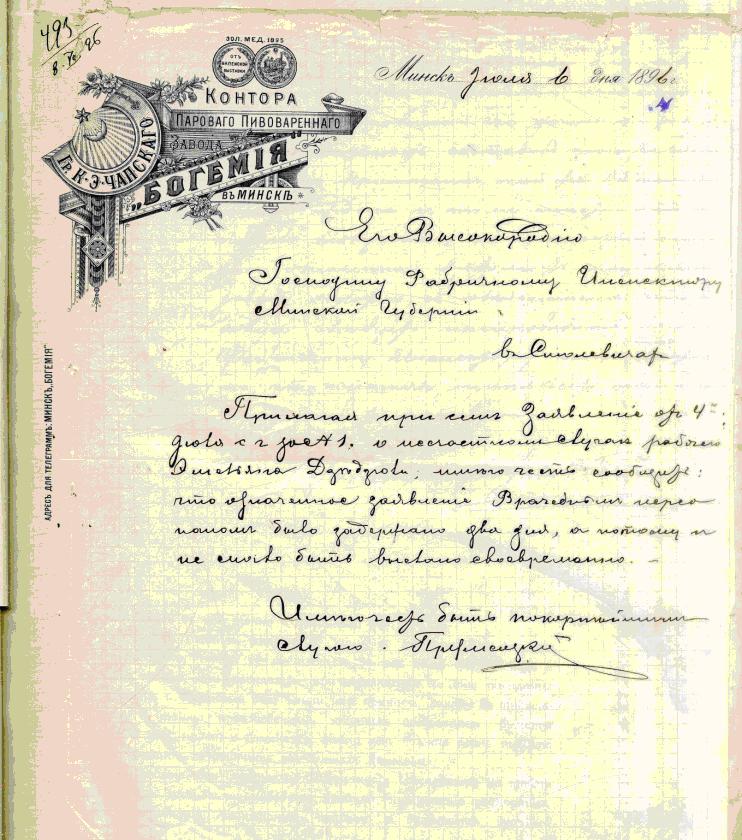 493
8. VII 96
ЗОЛ. МЕД. 1895
ОТЪ ВИЛЕНСКОЙ ВЫСТАВКИ
КОНТОРА
ПАРОВАГО ПИВОВАРЕННАГО
ЗАВОДА
ГР. К. Э. ЧАПСКАГО
„БОГЕМІЯ“
ВЪ МИНСКѢ
Минскъ Іюля 6 дня 1896 г.
Его Высокородію
Господину Фабричному Инспектору
Минской Губерніи
въ Смолевичахъ
Прилагая при семъ Заявленіе отъ 4го
Іюля с г за № 1. о несчастномъ случаѣ рабочаго
имѣю честь сообщить:
что означенное заявленіе Врачебнымъ персо
наломъ было задержано два дня, а потому и
не могло быть выслано своевременно. –
Имѣю честь быть покорнѣйшимъ
слугою.
АДРЕСЪ ДЛЯ ТЕЛЕГРАММЪ: МИНСКЪ, БОГЕМІЯ“